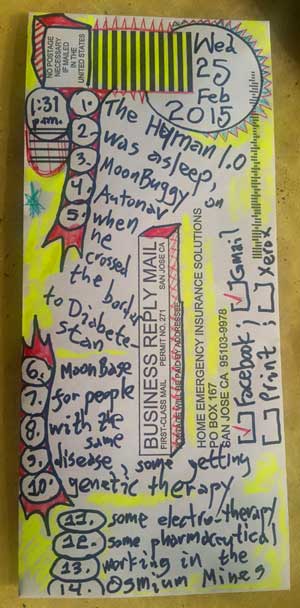 NO POSTAGE
NECESSARY
IF MAILED
IN THE
UNITED STATES
Wed
25
Feb
2015
1:31
p.m.
1. The Human 1.0
2. was asleep, in
3. MoonBuggy
4. Autonav
5. when
he
crossed
the border
to Diabete-
stan
BUSINESS REPLY MAIL
FIRST-CLASS MAIL PERMIT NO. 271 SAN JOSE CA
POSTAGE WILL BE PAID BY ADDRESSEE
HOME EMERGENCY INSURANCE SOLUTIONS
PO BOX 167
SAN JOSE CA 95103-9978
Facebook; Gmail
Print; Xerox
6. MoonBase
7. for people
8. with the
9. same
10. disease, some getting
genetic therapy
11. some electro-therapy
12. some pharmacutical
13. working in the
14. Osmium Mines